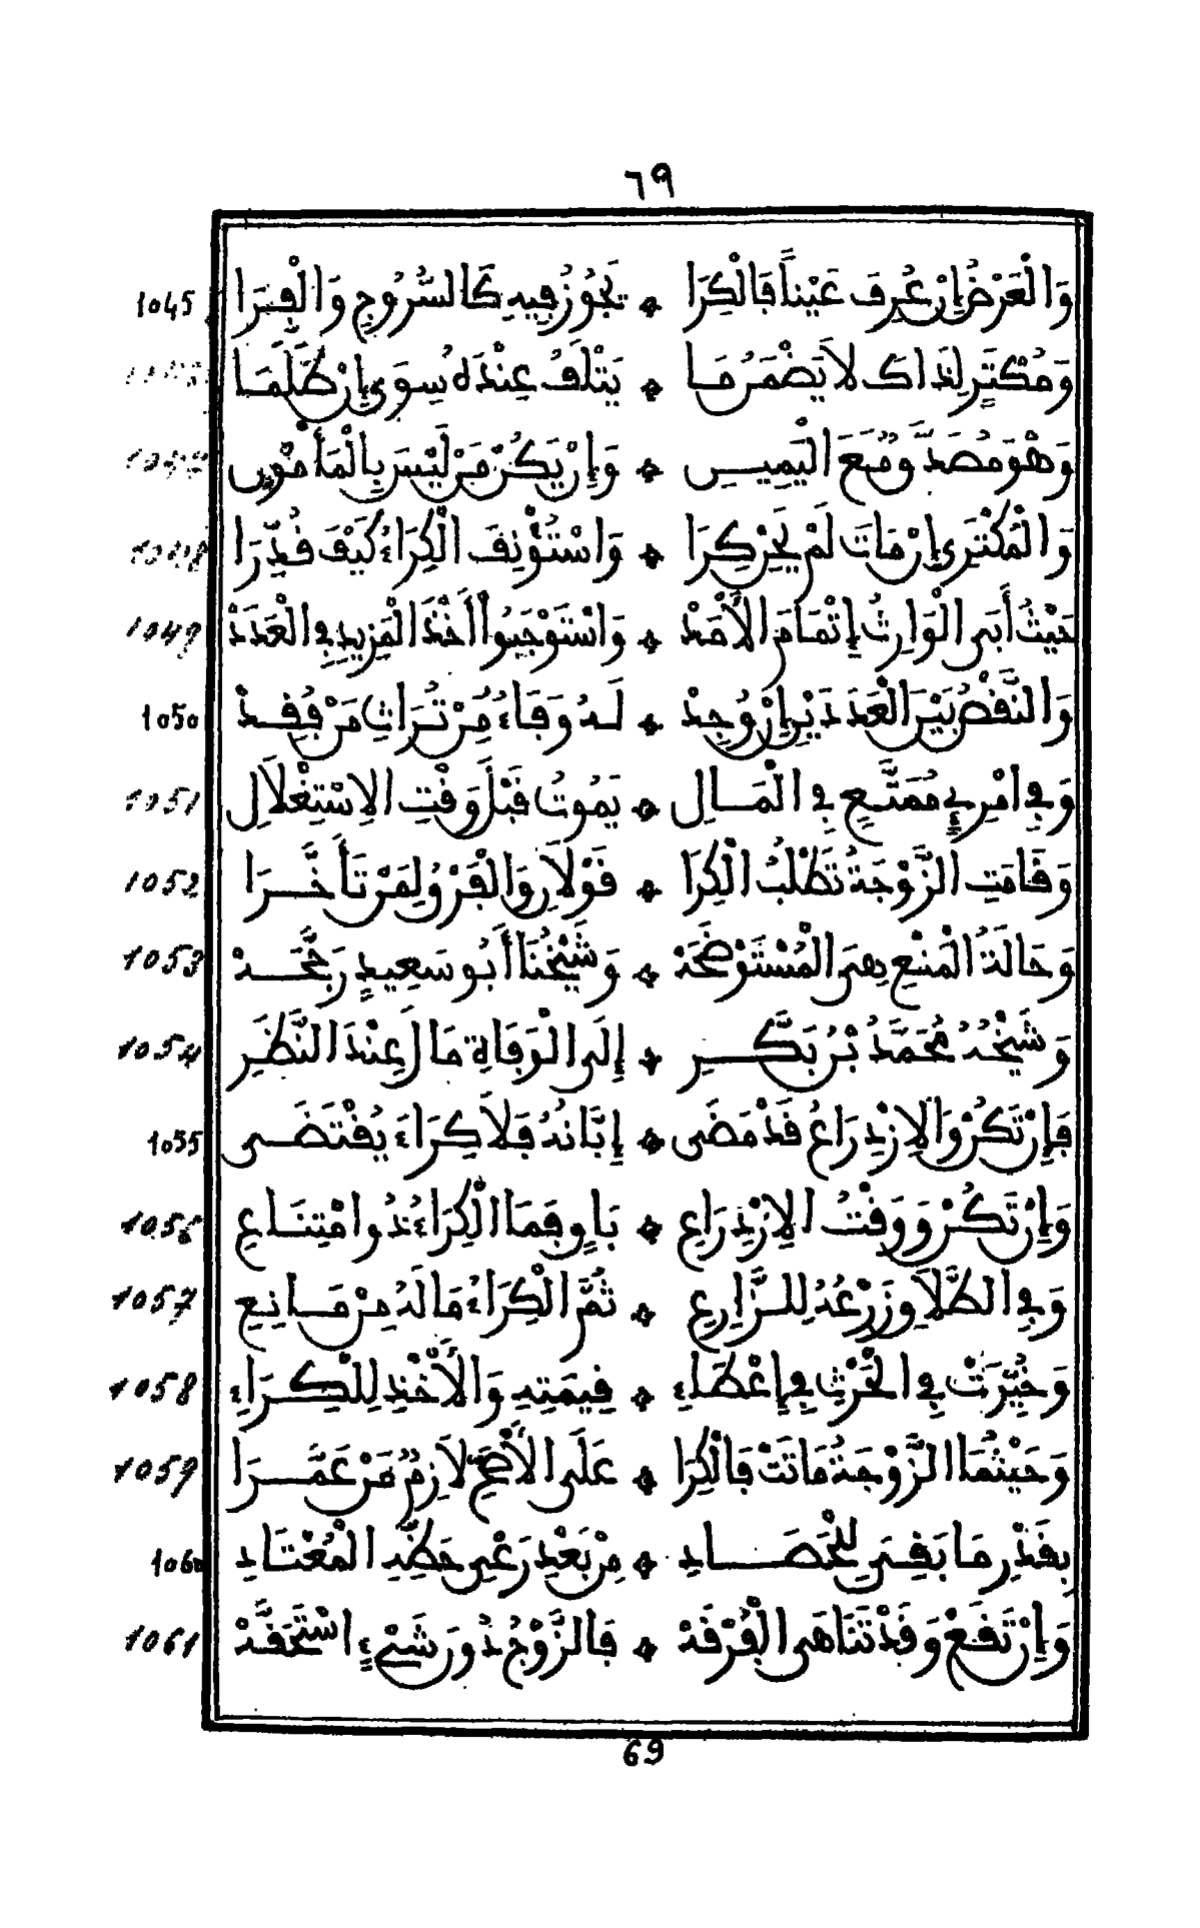 ٦٩
وَالْعَرْضُ إِنْ عُرِفَ عَيْناً فَالْكِرَا ۞ يَجُوزُ فِيهِ كَالسُّرُوجِ وَالْفِرَا 1045
وَمُكْتَرٍ لِذَاكَ لاَ يَضْمَنُ مَا ۞ يَتْلَفُ عِنْدَهُ سِوَى إِنْ ظَلَمَا
وَهْوَ مُصَدَّقٌ مَعَ الْيَمِيــنِ ۞ وَإِنْ يَكُنْ مَنْ لَيْسَ بِالْمَأْمُونِ 1047
وَالْمُكْتَرِي إِنْ مَاتَ لَمْ يَحِنْ كِرَا ۞ وَاسْتُؤْنِفَ الْكِرَاءُ كَيْفَ قُدِّرَا 1048
حَيْثُ أَبَى الْوَارِثُ إِتْمَامَ الْأَمَدْ ۞ وَاسْتَوْجَبُوا أَخْذَ الْمَزِيدِ فِي الْعَدَدْ 1049
وَالنَّقْصُ بَيْنَ الْعَدَدَيْنِ إِنْ وُجِدْ ۞ لَــهُ وَفَاءٌ مِنْ تُرَاثِ مَنْ فُقِــدْ 1050
وَفِي امْرِئٍ مُمَتَّــعٍ فِي الْمَــالِ ۞ يَمُوتُ قَبْلَ وَقْتِ الاِسْتِغْلاَلِ 1051
وَقَامَتِ الزَّوْجَةُ تَطْلُبُ الْكِرَا ۞ قَوْلاَنِ وَالْفَرْقُ لِمَنْ تَأَخَّــرَا 1052
وَحَالَةُ الْمَنْعِ هِيَ الْمُسْتَوْضَحَهْ ۞ وَشَيْخُنَا أَبُو سَعِيدٍ رَجَّحَــهْ 1053
وَشَيْخُهُ مُحَمَّدُ بْنُ بَكَّــرِ ۞ إِلَى الْوَفَاةِ مَالَ عِنْدَ النَّظَرِ 1054
فَإِنْ تَكُنْ وَالاِزْدِرَاعُ قَدْ مَضَى ۞ إِبَّانُهُ فَلاَ كِرَاءَ يُقْتَضَــى 1055
وَإِنْ تَكُنْ وَوَقْتُ الاِزْدِرَاعِ ۞ بَاقٍ فَمَا الْكِرَاءُ ذُو امْتِنَــاعِ 1056
وَفِي الطَّلاَقِ زَرْعُهُ لِلــزَّارِعِ ۞ ثُمَّ الْكِرَاءُ مَا لَهُ مِنْ مَــانِعِ 1057
وَخُيِّرَتْ فِي الْحَرْثِ فِي إِعْطَاءِ ۞ قِيمَتِهِ وَالْأَخْذِ لِلْكِــرَاءِ 1058
وَحَيْثُمَا الزَّوْجَةُ مَاتَتْ فَالْكِرَا ۞ عَلَى الْأَصَحِّ لاَزِمٌ مَنْ عَمَّــرَا 1059
بِقَدْرِ مَا بَقِيَ لِلْحَصَــادِ ۞ مِنْ بَعْدِ رَعْيِ حَظِّهِ الْمُعْتَــادِ 1060
وَإِنْ تَقَعْ وَقَدْ تَنَاهَى الْفُرْقَهْ ۞ فَالزَّوْجُ دُونَ شَيْءٍ اسْتَحَقَّهْ 1061
69